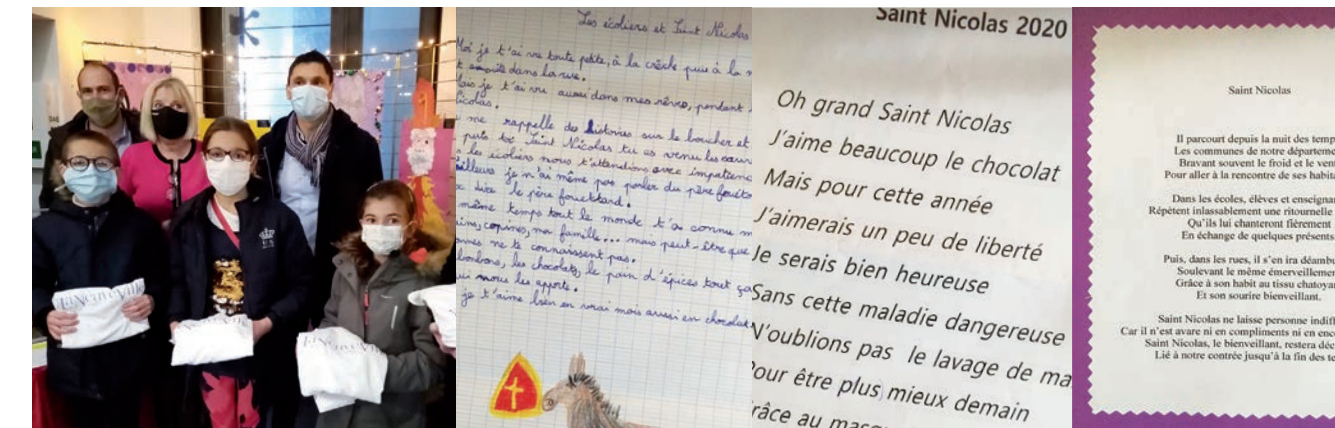 LaNeuveVille
LaNeuveVille
LaNeuveVille
Les écoliers et Saint Nicolas
Moi je t'ai vu toute petite, à la crèche puis à la
et ensuite dans la rue.
Mais je t'ai vu aussi dans mes rêves, pendant
Nicolas.
me rappelle des histoires sur le boucher et
puis toi Saint Nicolas tu es venu les sauv
les écoliers nous t'attendions avec impatience
ailleurs je n'ai même pas parler du père fouett
dire le père fouettard.
même temps tout le monde t'as connu m
copines, ma famille... mais peut-être que
ne te connaissent pas.
bonbons, les chocolats, le pain d'épices tout ça
qui nous les apporte.
je t'aime bien en vrai mais aussi en chocolat
Saint Nicolas 2020
Oh grand Saint Nicolas
J'aime beaucoup le chocolat
Mais pour cette année
J'aimerais un peu de liberté
Je serais bien heureuse
Sans cette maladie dangereuse
N'oublions pas le lavage de ma
Pour être plus mieux demain
râce au masq
Saint Nicolas
Il parcourt depuis la nuit des temp
Les communes de notre départeme
Bravant souvent le froid et le ven
Pour aller à la rencontre de ses habita
Dans les écoles, élèves et enseignan
Répètent inlassablement une ritournelle
Qu'ils lui chanteront fièrement
En échange de quelques présents
Puis, dans les rues, il s'en ira déambu
Soulevant le même émerveillemen
Grâce à son habit au tissu chatoya
Et son sourire bienveillant.
Saint Nicolas ne laisse personne indiff
Car il n'est avare ni en compliments ni en enco
Saint Nicolas, le bienveillant, restera déc
Lié à notre contrée jusqu'à la fin des te